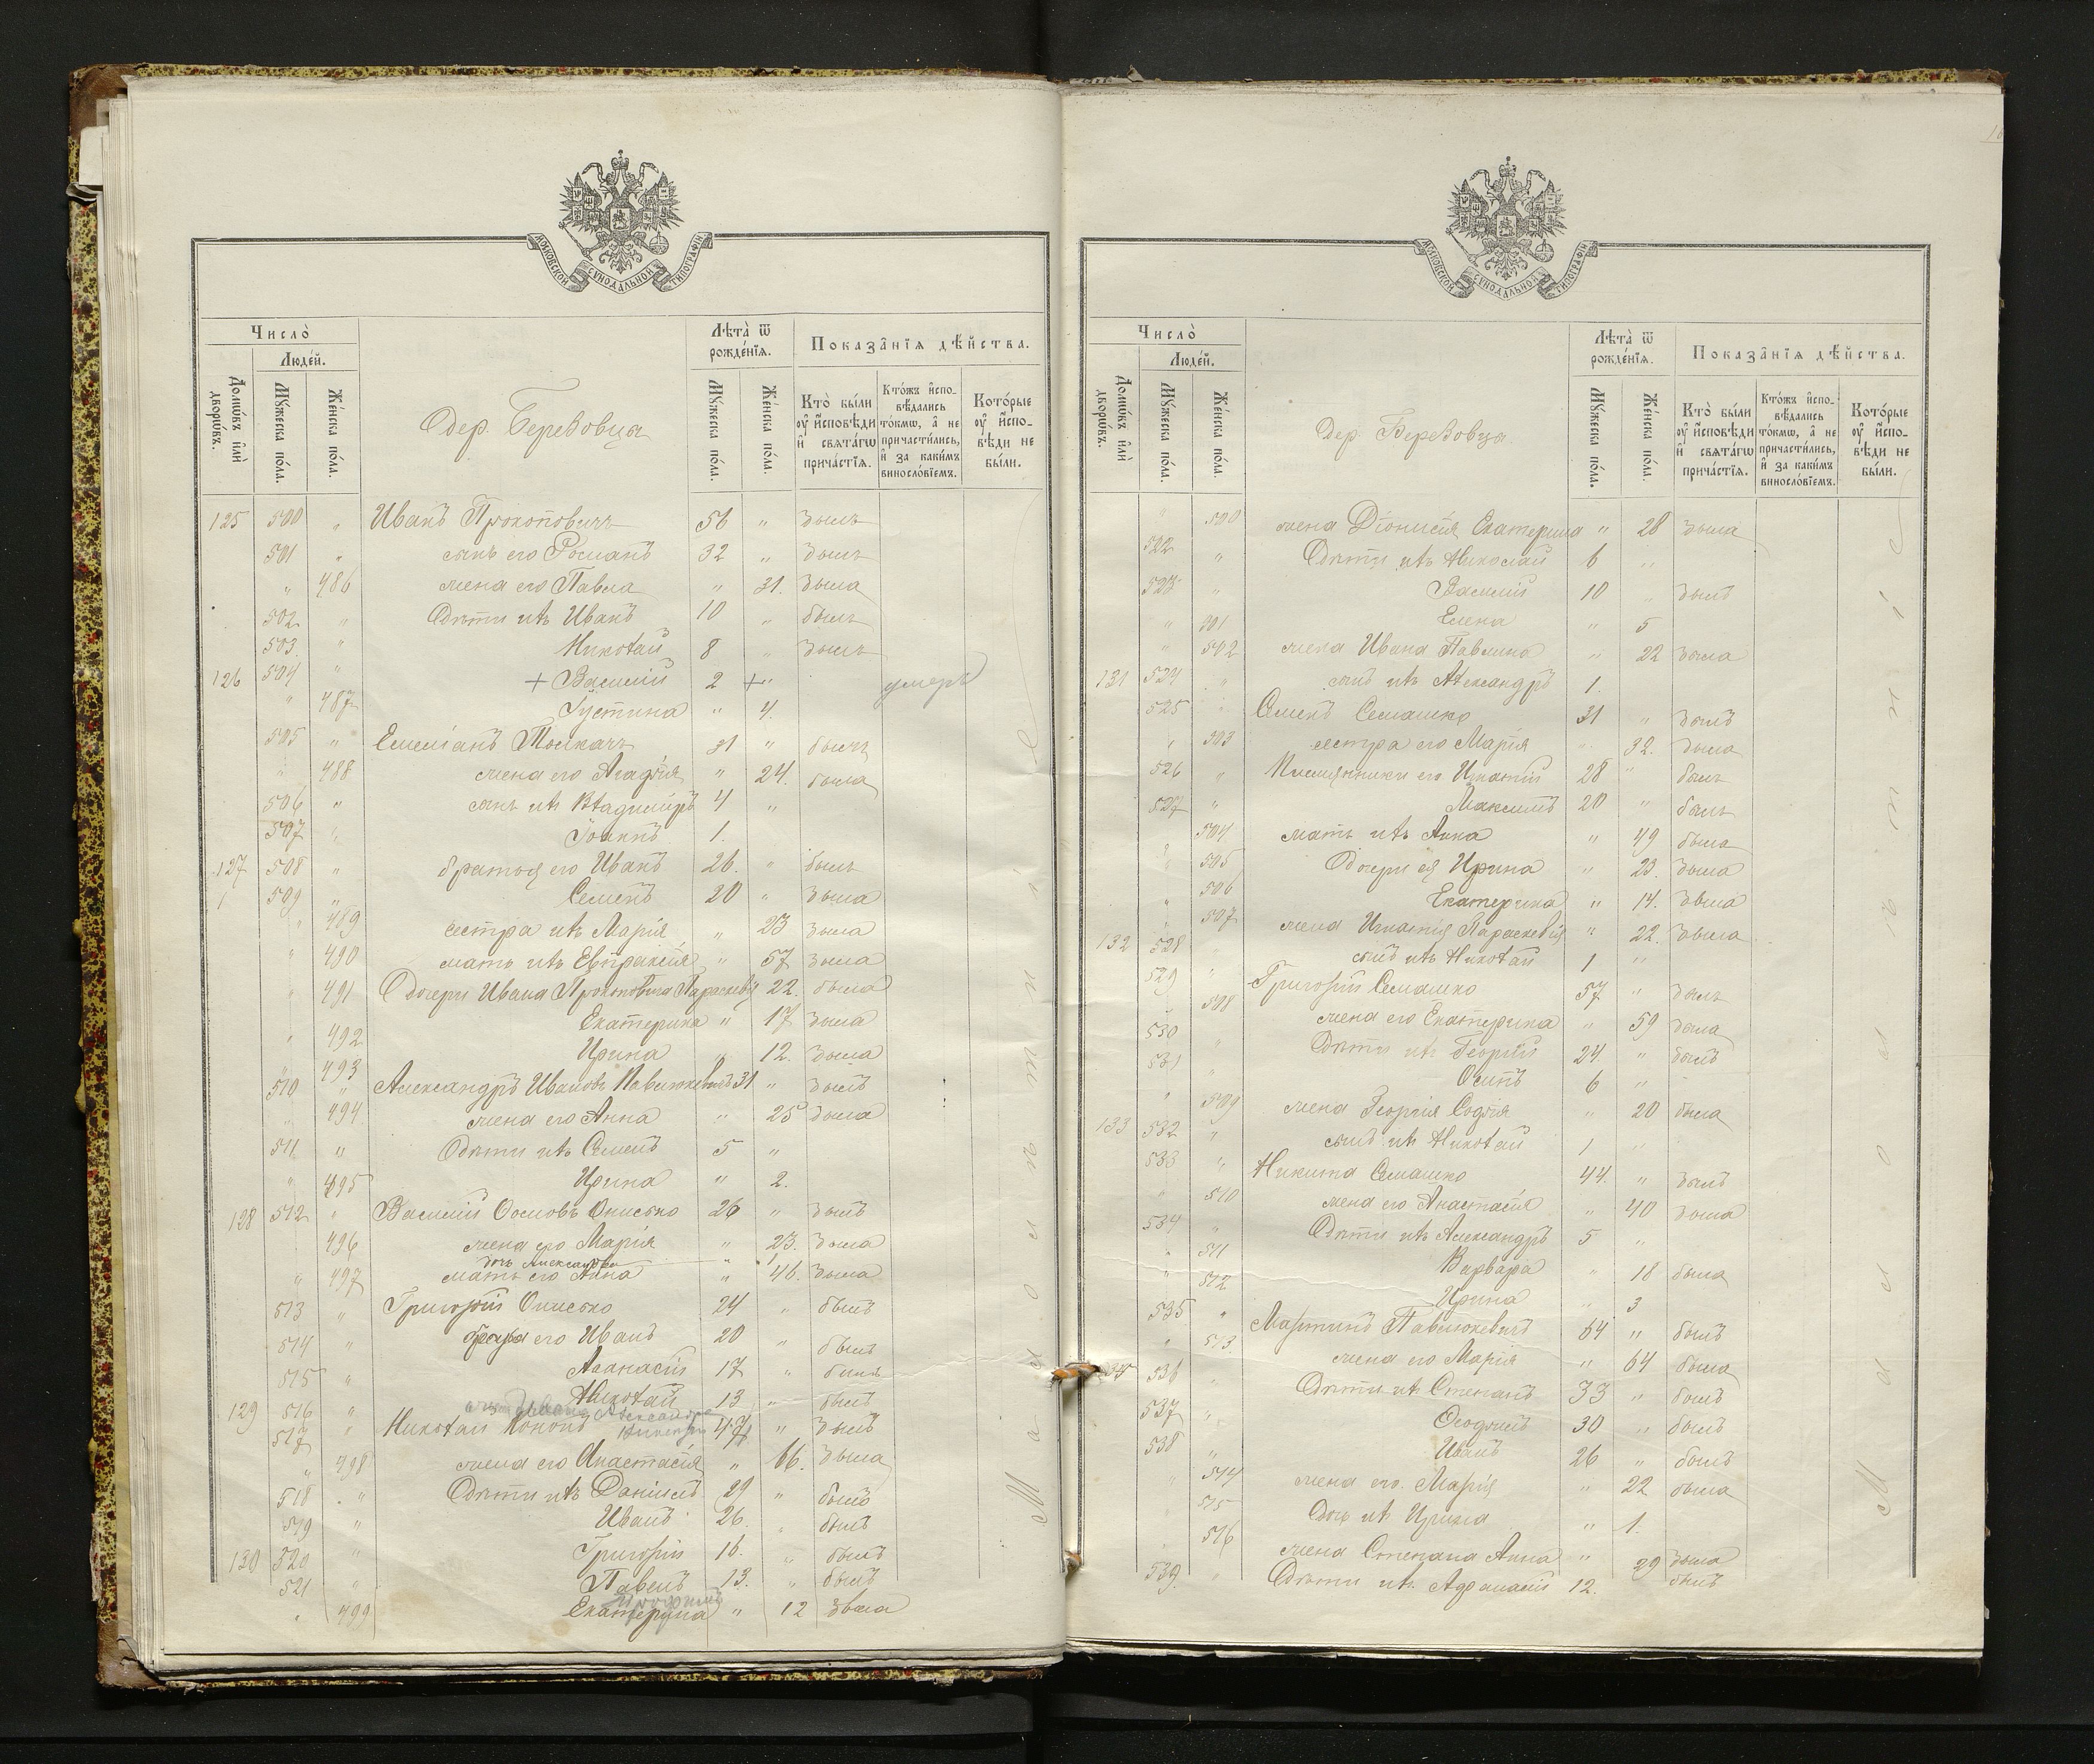 МОСКОВСКОЙ СѴНОДАЛЬНОЙ ТИПОГРАФІИ
Число̀
Люде́й.
Домѡ́въ и҆лѝ дворѡ́въ.
Мꙋ́жеска по́ла.
Же́нска по́ла.
Дер. Березовца
Лѣта̀ ѿ рожде́нїѧ.
Мꙋ́жеска по́ла.
Же́нска по́ла.
Показа̑нїѧ дѣ́йства.
Кто̀ бы́ли ᲂу҆ и҆сповѣ́ди и҆ свѧта́гѡ прича́стїѧ.
Кто́жъ и҆сповѣ́дались то́кмѡ, а҆ не причасти́лись, и҆ за каки́мъ винослѡ́вїемъ.
Кото́рые ᲂу҆ и҆сповѣ́ди не бы́ли.
125 500 " Иванъ Прокоповичъ 56 " былъ
501 " сынъ его Романъ 32 " былъ
" 486 жена его Павла " 31. была
502 " Дѣти ихъ Иванъ 10 " былъ
503. " Николай 8 " былъ
126 504 " + Василій 2 + " умеръ
" 487 Іустина " 4.
505 " Емеліанъ Толкачъ 31 " былъ
" 488 жена его Агафія " 24. была
506 " сынъ ихъ Владиміръ 4 "
507 " Іоаннъ 1.
127 508 " братья его Иванъ 26. " былъ
509 " Семенъ 20 " была
" 489 сестра ихъ Марія " 23 была
" 490 мать ихъ Евпраксія " 57 была
" 491 Дочери Ивана Прокоповича Параскевія 22. была
" 492 Екатерина " 17 была
" 493 Ирина " 12. была
510 " Александръ Ивановъ Павлюкевичъ 31 " былъ
" 494 жена его Анна " 25 была
511 " Дѣти ихъ Семенъ 5 "
" 495 Ирина " 2.
128 512 " Василій Осиповъ Онисько 26 " былъ
496 жена его Марія " 23. была
дочь Александра "
" 497 мать его Анна " 46. была
513 " Григорій Онисько 24 " былъ
514 " братья его Иванъ 20 " былъ
515 " Аѳанасій 17 " былъ
129 516 " Николай 13 " былъ
517 " Николай Кононъ 47 " былъ
" 498 жена его Анастасія " 46. была
518 " Дѣти ихъ Даніилъ 29 " былъ
519 " Иванъ 26. " былъ
130 520 " Григорій 16. " былъ
521 " Павелъ 13. " былъ
" 499 Екатерина " 12 была
Малолѣтни
МОСКОВСКОЙ СѴНОДАЛЬНОЙ ТИПОГРАФІИ
Число̀
Люде́й.
Домѡ́въ и҆лѝ дворѡ́въ.
Мꙋ́жеска по́ла.
Же́нска по́ла.
Дер. Березовца
Лѣта̀ ѿ рожде́нїѧ.
Мꙋ́жеска по́ла.
Же́нска по́ла.
Показа̑нїѧ дѣ́йства.
Кто̀ бы́ли ᲂу҆ и҆сповѣ́ди и҆ свѧта́гѡ прича́стїѧ.
Кто́жъ и҆сповѣ́дались то́кмѡ, а҆ не причасти́лись, и҆ за каки́мъ винослѡ́вїемъ.
Кото́рые ᲂу҆ и҆сповѣ́ди не бы́ли.
" 500 жена Діонисія Екатерина " 28 была
522 " Дѣти ихъ Николай 6 "
523 " Василій 10 " былъ
" 501 Елена " 5
" 502 жена Ивана Павлина " 22 была
131 524 " сынъ ихъ Александръ 1.
525 " Семенъ Семашко 31 " былъ
" 503 сестра его Марія " 32. была
526 " Племянники его Игнатій 28 " былъ
527 " Максимъ 20 " былъ
504 мать ихъ Анна " 49 была
" 505 Дочери ея Ирина " 23. была
" 506 Екатерина " 14. была
" 507 жена Игнатія Параскевія " 22. была
132 528 сынъ ихъ Николай 1 "
529 " Григорій Семашко 57 " былъ
508 жена его Екатерина " 59 была
530 " Дѣти ихъ Георгій 24 " былъ
531 " Осипъ 6 "
" 509 жена Георгія Софія " 20 была
133 532 " сынъ ихъ Николай 1 "
533 " Никита Семашко 44. " былъ
" 510 жена его Анастасія " 40 была
534 " Дѣти ихъ Александръ 5 "
" 511 Варвара " 18 была
" 512 Ирина " 3
535 " Мартинъ Павлюкевичъ 64 " былъ
" 513. жена его Марія " 64 была
536 " Дѣти ихъ Степанъ 33 " былъ
537 " Ѳеофилъ 30 " былъ
538 " Иванъ 26 " былъ
" 514 жена его Марія " 22 была
515 Дочь ихъ Ирина " 1.
516 жена Степана Анна " 29 была
539. " Дѣти ихъ Афанасій 12. былъ
Малолѣтни